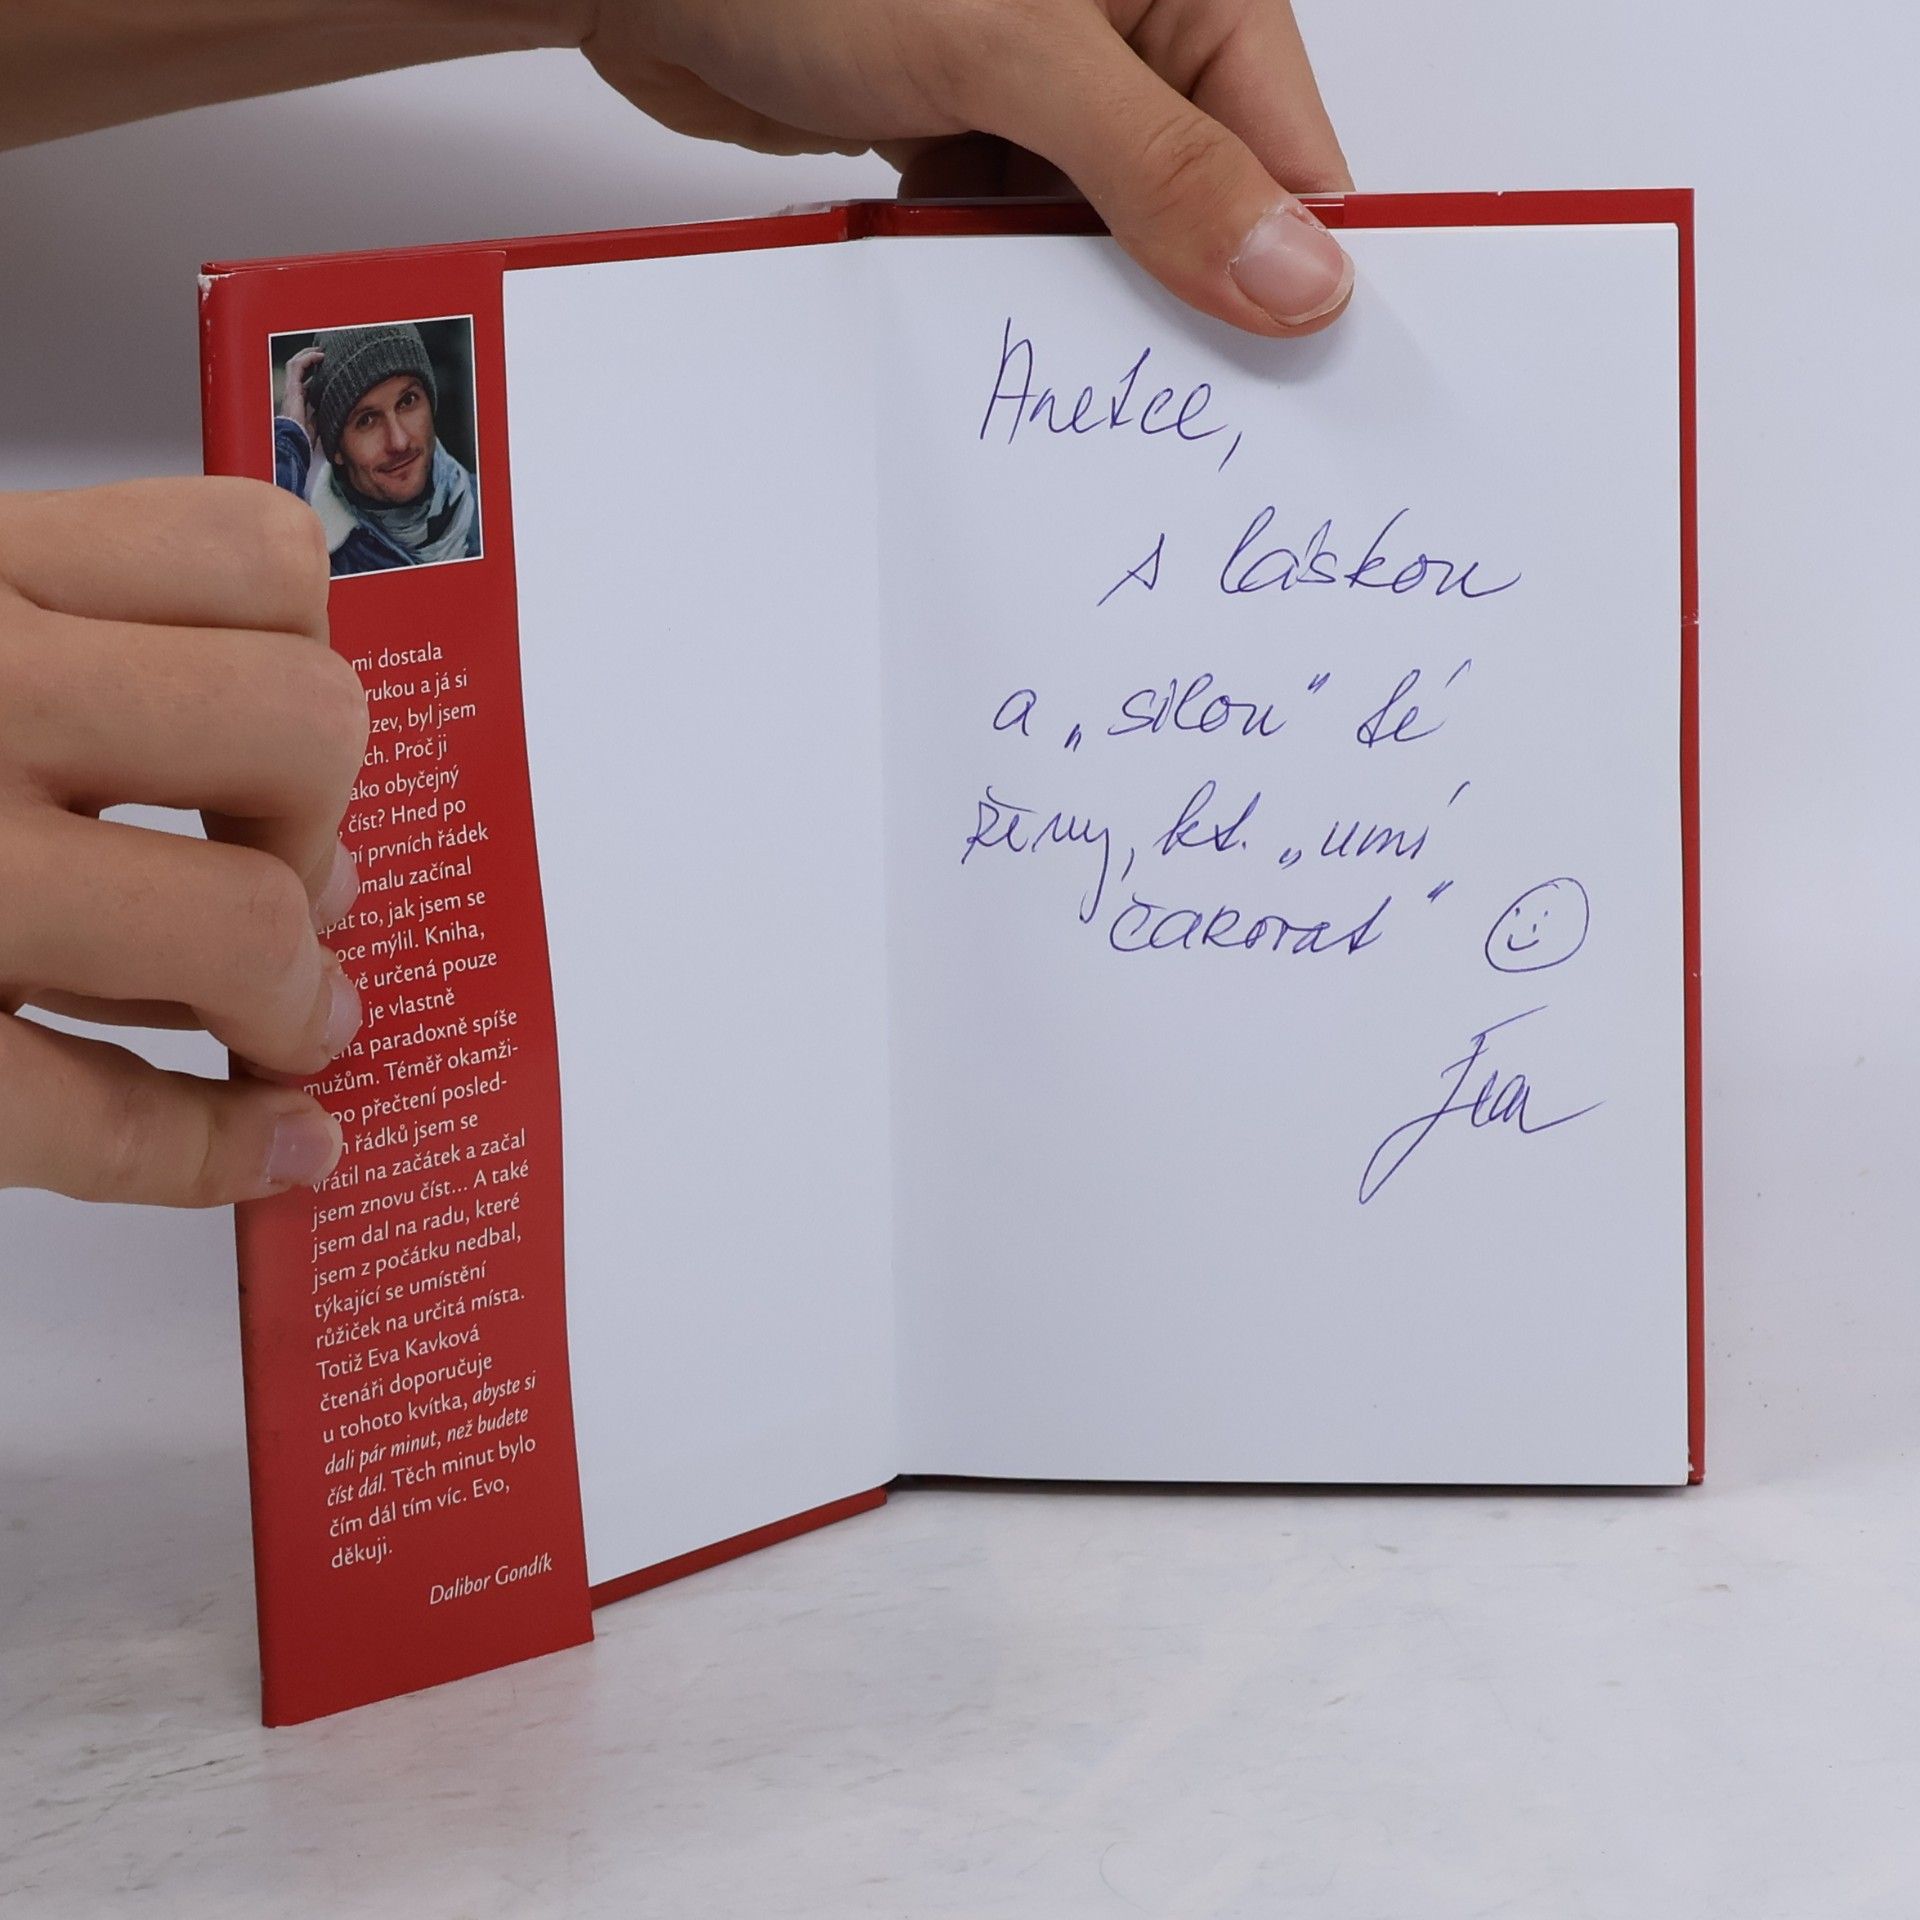 mi dostala
rukou a já si
zev, byl jsem
ch. Proč ji
ako obyčejný
, číst? Hned po
ní prvních řádek
malu začínal
pat to, jak jsem se
oce mýlil. Kniha,
vě určená pouze
, je vlastně
ena paradoxně spíše
mužům. Téměř okamži-
po přečtení posled-
h řádků jsem se
vrátil na začátek a začal
jsem znovu číst... A také
jsem dal na radu, které
jsem z počátku nedbal,
týkající se umístění
růžiček na určitá místa.
Totiž Eva Kavková
čtenáři doporučuje
u tohoto kvítka, abyste si
dali pár minut, než budete
číst dál. Těch minut bylo
čím dál tím víc. Evo,
děkuji.
Dalibor Gondík
Anetce,
s láskou
a „silou" té
ženy, kt. „umí
čarovat"
Eva